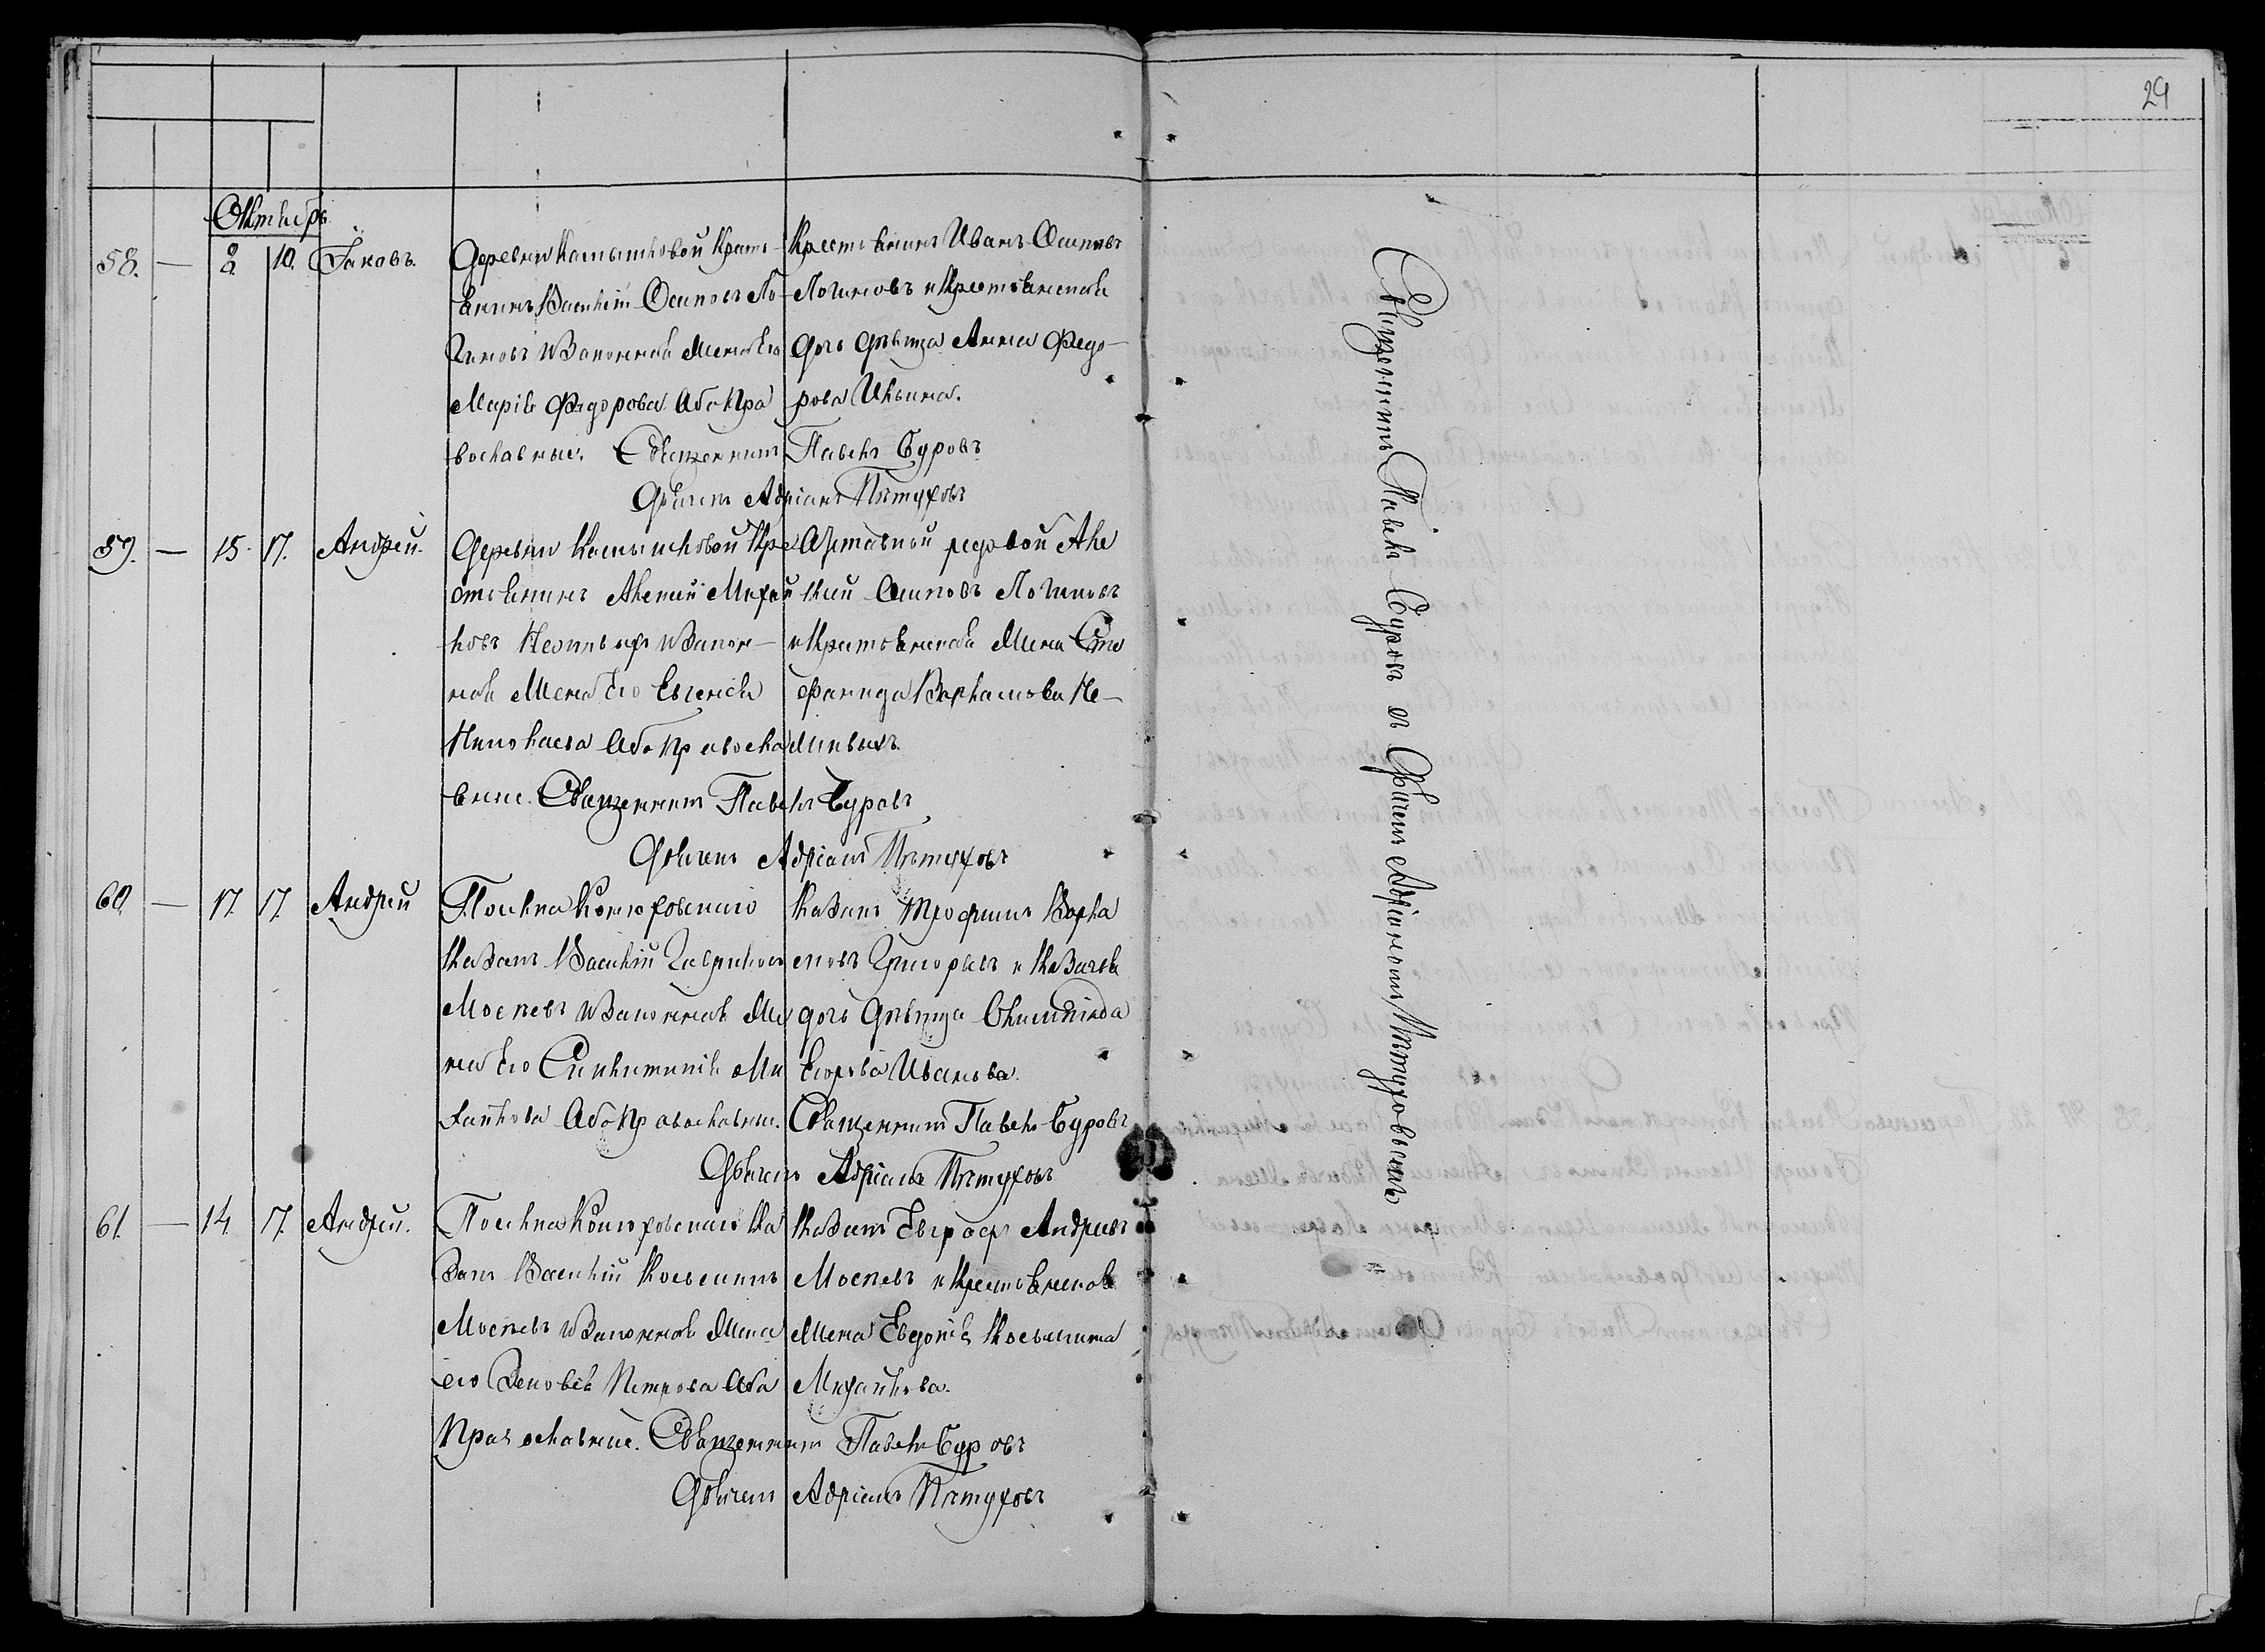 29
Октябрь
58. — 8. 10. Іаковъ.
Деревни Камышловой Крест-
янинъ Василій Осиповъ Ло-
гиновъ и Законная Жена Его
Марія Федорова Оба Пра
вославные.
Крестьянинъ Иванъ Осиповъ
Логиновъ и Крестьянская
дочь дѣвица Анна Федо-
рова Ильина.
Священникъ Павелъ Буровъ
Дьячекъ Адріанъ Пѣтуховъ
59. — 15. 17. Андрей.
Деревни Камышловой Кре
стьянинъ Алексій Михай
ловъ и Закон-
ная Жена Его Евгенія
Николаева Оба Правосла
вные.
Отставной рядовой Але
ксій Осиповъ Логиновъ
и Крестьянская Жена Сте
фанида Варламова
Священникъ Павелъ Буровъ
Дьячекъ Адріанъ Пѣтуховъ
60. — 17. 17. Андрей
Поселка Кочюровскаго
Казакъ Василій Гаврилов
Москвъ и Законная Же
на Его Синклитикія Ми
хайлова Оба Православные.
Казакъ Трофимъ Варла
мовъ Григорьевъ и Казачья
дочь дѣвица Олимпіада
Егорова Иванова.
Священникъ Павелъ Буровъ
Дьячекъ Адріанъ Пѣтуховъ
61. — 14. 17. Андрей.
Поселка Кочюровскаго Ка
закъ Василій Косьминъ
Москвъ и Законная Жена
его Зеновія Петрова Оба
Православные.
Казакъ Евграфъ Андреевъ
Москвъ и Крестьянская
Жена Евдокія Косьмина
Михайлова.
Священникъ Павелъ Буровъ
Дьячекъ Адріанъ Пѣтуховъ
Священникъ Павелъ Буровъ съ Дьячкомъ Адріаномъ Пѣтуховымъ